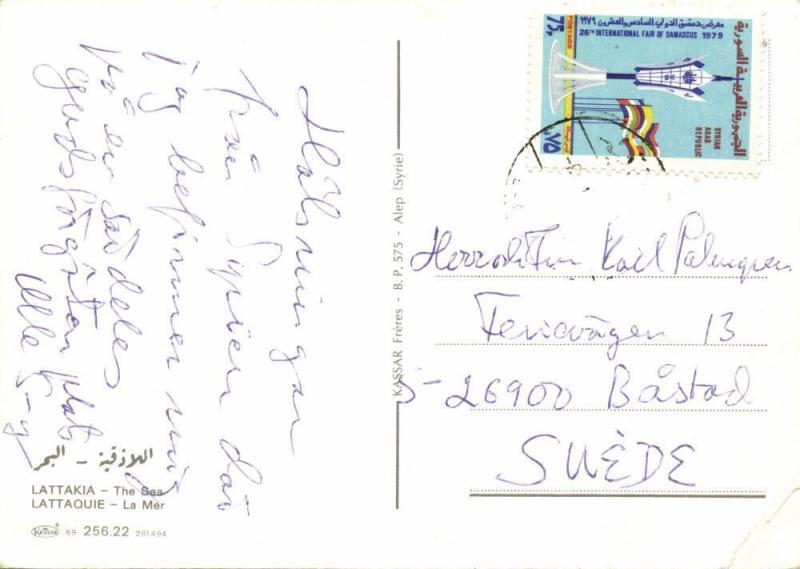 Hälsningar
från Syrien där
jag befinner mig
på en således
gudsförgäten plats
Ulle
اللاذقية - البحر
LATTAKIA - The Sea
LATTAQUIE - La Mer
Kruger 69 256.22 261494
KASSAR Frères - B.P. 575 - Alep (Syrie)
معرض دمشق الدولي السادس والعشرون ١٩٧٩
26TH INTERNATIONAL FAIR OF DAMASCUS 1979
POSTAGE
75P
٧٥
SYRIAN
ARAB
REPUBLIC
الجمهورية العربية السورية
Herr och Fru Karl Palmgren
13
S-26900 Båstad
SUÈDE